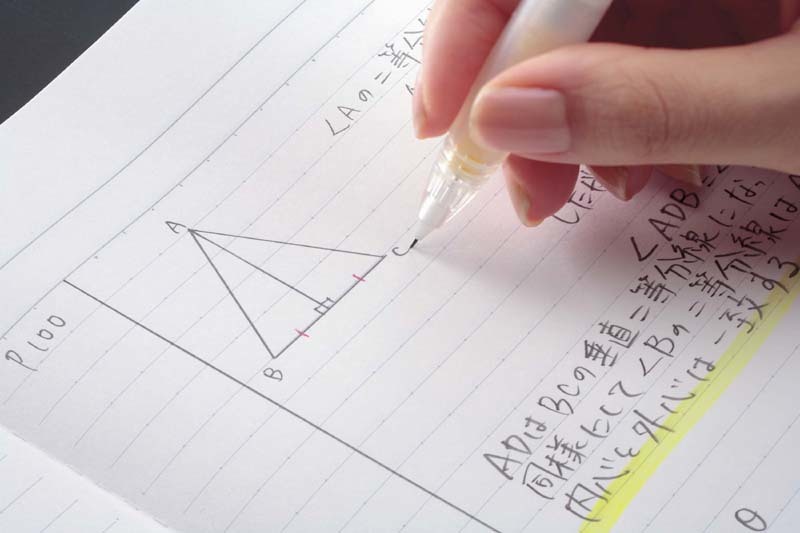 P100
A
B
C
∠Aの二等分
∠ADB=
ADはBCの垂直二等分線にな
同様にして∠Bの二等分線は
内心と外心は一致する
θ